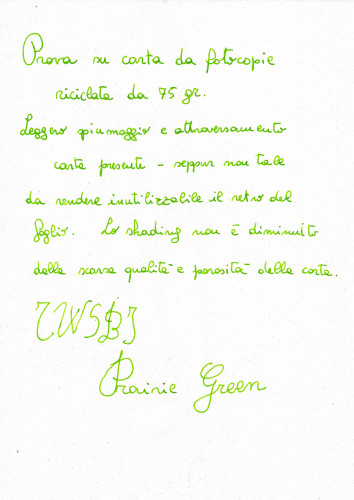 Prova su carta da fotocopie
riciclata da 75 gr.
Leggero piumaggio e attraversamento
carta presente - seppur non tale
da rendere inutilizzabile il retro del
foglio. Lo shading non è diminuito
dalla scarsa qualità e porosità della carta.
TWSBI
Prairie Green